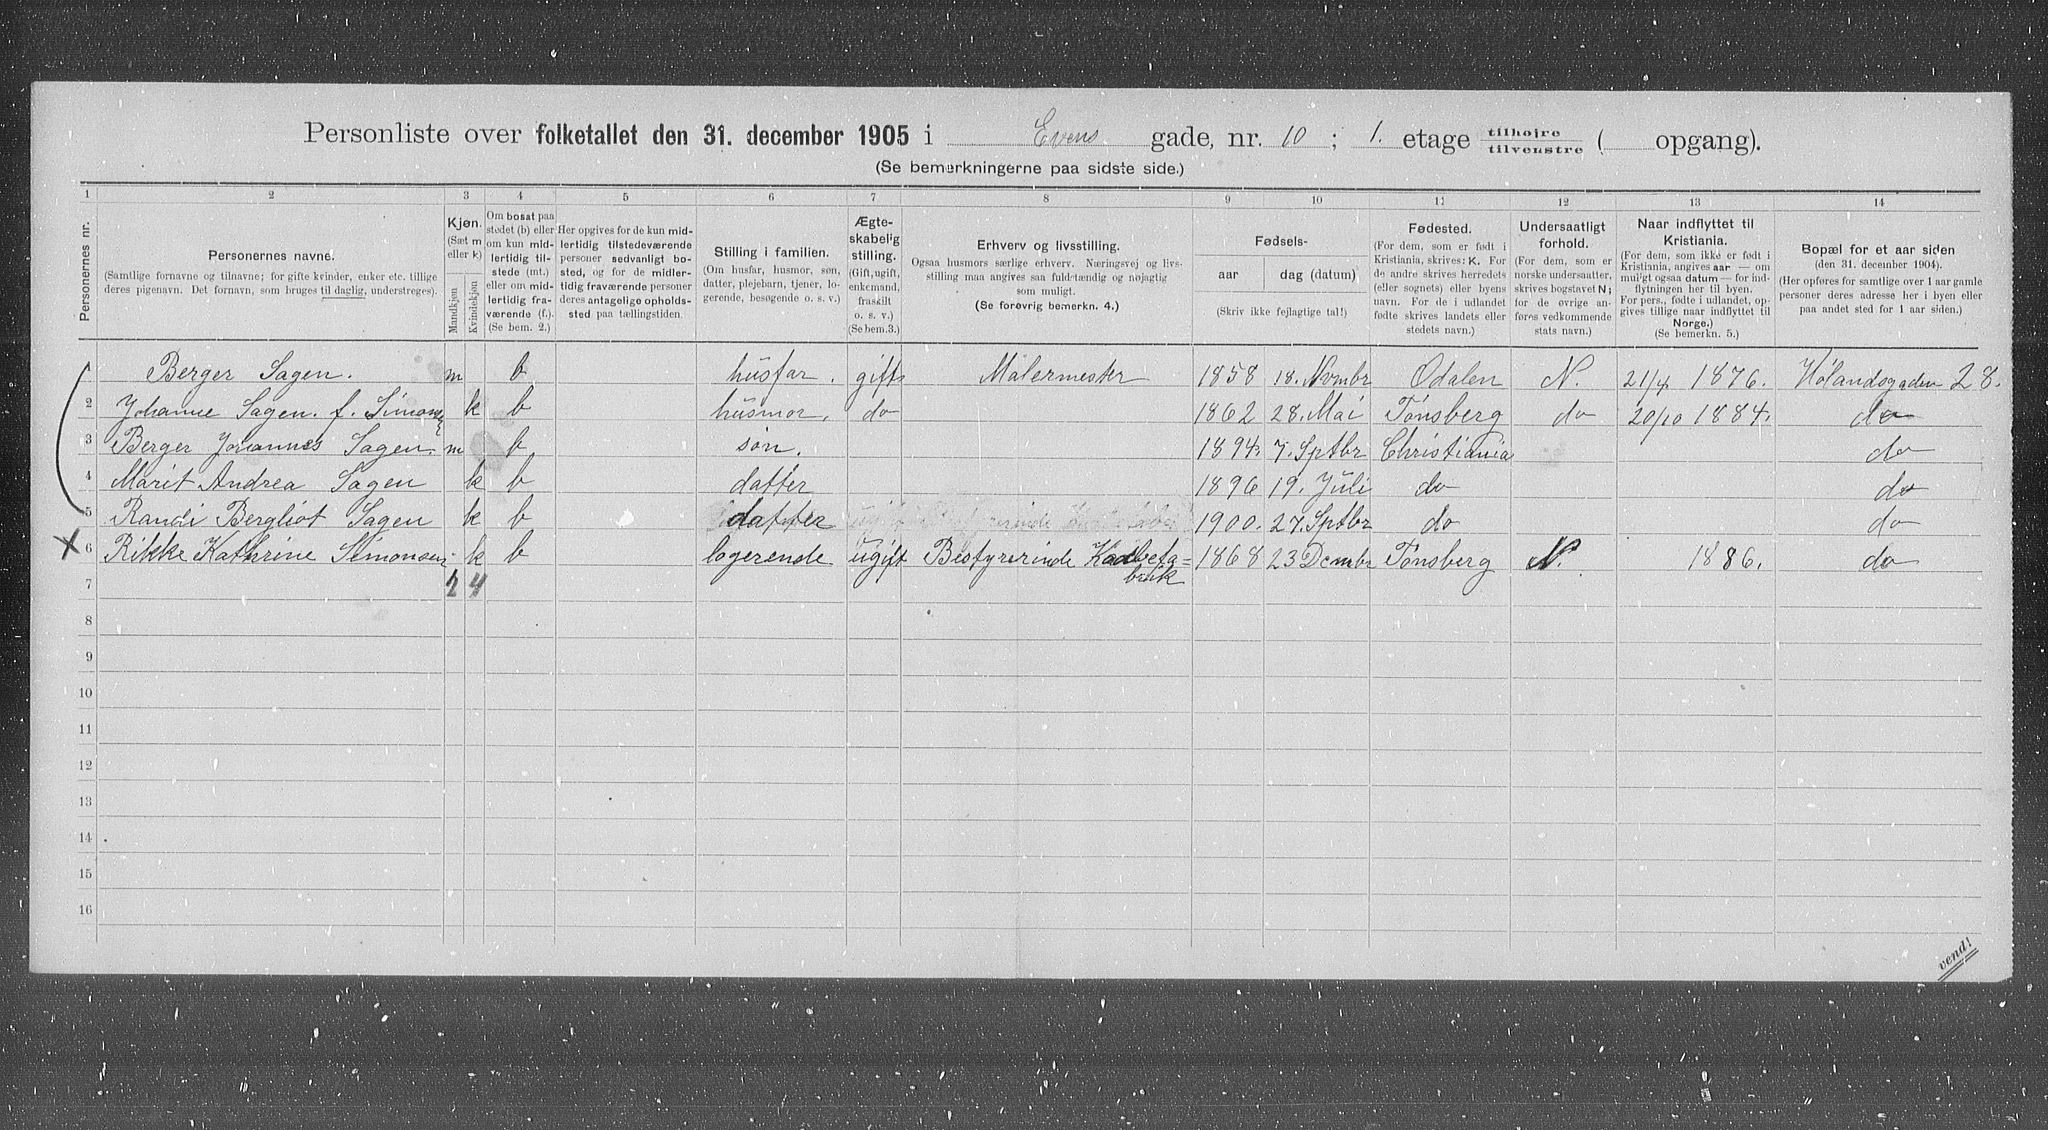 Personliste over folketallet den 31. december 1905 i Evens gade, nr. 10 ; 1. etage tilhøjre tilvenstre ( opgang).
(Se bemerkningerne paa sidste side.)
1 2 3 4 5 6 7 8 9 10 11 12 13 14
Personernes nr.
Personernes navne.
(Samtlige fornavne og tilnavne; for gifte kvinder, enker etc. tillige
deres pigenavn. Det fornavn, som bruges til daglig, understreges).
Kjøn.
(Sæt m
eller k)
Mandkjøn
Kvindekjøn
Om bosat paa
stedet (b) eller
om kun mid-
lertidig til-
stede (mt.)
eller om mid-
lertidig fra-
værende (f.).
(Se bem. 2.)
Her opgives for de kun mid-
lertidig tilstedeværende
personer sedvanligt bo-
sted, og for de midler-
tidig fraværende personer
deres antagelige opholds-
sted paa tællingstiden.
Stilling i familien.
(Om husfar, husmor, søn,
datter, plejebarn, tjener, lo-
gerende, besøgende o. s. v.)
Ægte-
skabelig
stilling.
(Gift, ugift,
enkemand,
fraskilt
o. s. v.)
(Se bem.3.)
Erhverv og livsstilling.
Ogsaa husmors særlige erhverv. Næringsvej og livs-
stilling maa angives saa fuldstændig og nøjagtig
som muligt.
(Se forøvrig bemerkn. 4.)
Fødsels-
aar dag (datum)
(Skriv ikke fejlagtige tal!)
Fødested.
(For dem, som er født i
Kristiania, skrives: K. For
de andre skrives herredets
(eller sognets) eller byens
navn. For de i udlandet
fødte skrives landets eller
stedets navn.)
Undersaatligt
forhold.
(For dem, som er
norske undersaatter,
skrives bogstavet N;
for de øvrige an-
føres vedkommende
stats navn.)
Naar indflyttet til
Kristiania.
(For dem, som ikke er født i
Kristiania, angives aar — om
muligt ogsaa datum — for ind-
flytningen her til byen.
For pers., fødte i udlandet, op-
gives tillige naar indflyttet til
Norge.)
(Se bemerkn. 5.)
Bopæl for et aar siden
(den 31. december 1904).
(Her opføres for samtlige over 1 aar gamle
personer deres adresse her i byen eller
paa andet sted for 1 aar siden.)
1 Berger Sagen. m b husfar. gift Malermester 1858 18. Novmbr Odalen N. 21/4 1876. Hølandsgaden 28.
2 Johanne Sagen. f. Simonsen k b husmor. do 1862 28. Mai Tønsberg do 20/10 1884. do
3 Berger Johannes Sagen. m b søn. 1894 7. Sptbr Christiania do
4 Marit Andrea Sagen k b datter 1896 19. Juli do do
5 Randi Bergliot Sagen k b datter 1900. 27. Sptbr do do
6 Rikke Kathrine Simonsen k b logerende ugift Bestyrerinde 1868 23 Dcmbr Tønsberg N. 1886. do
7 2 4
8
9
10
11
12
13
14
15
16
vend!